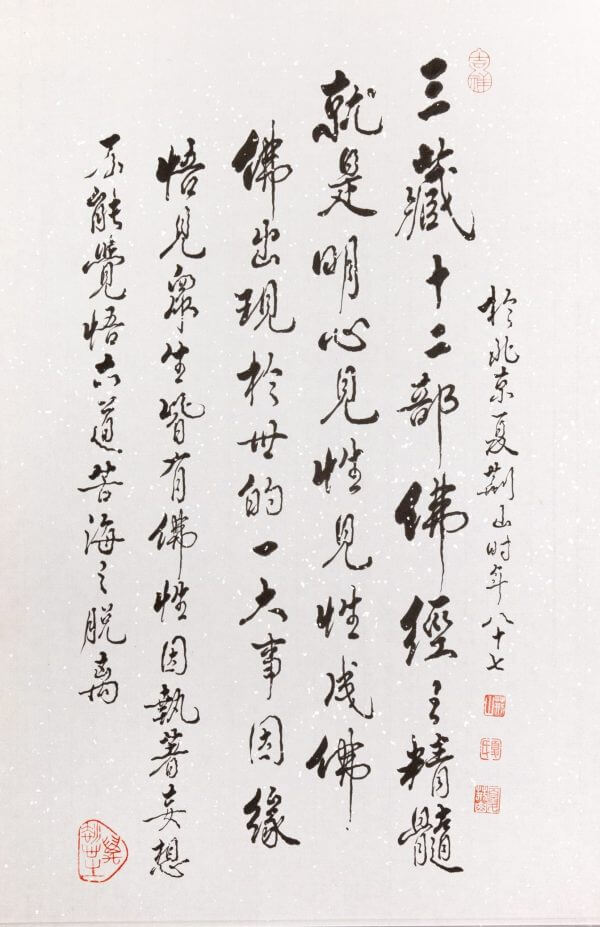 三藏十二部佛經之精髓
就是明心見性見性成佛
佛出現於世的一大事因緣
悟見眾生皆有佛性因執著妄想
不能覺悟六道苦海之脫離
於北京夏荊山时年八十七
吉祥